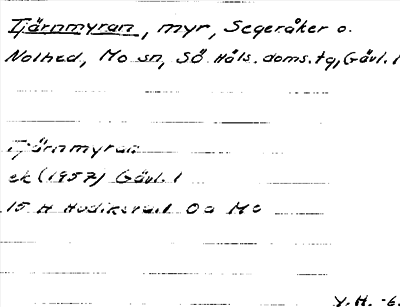 Tjärnmyran, myr, Segeråker o.
Nolhed, Mo sn, Sö Häls. doms. tg, Gävl. l
Tjärnmyran
ek (1957) Gävl. l
15 H Hudiksvall 0a Mo
Y. H. -6